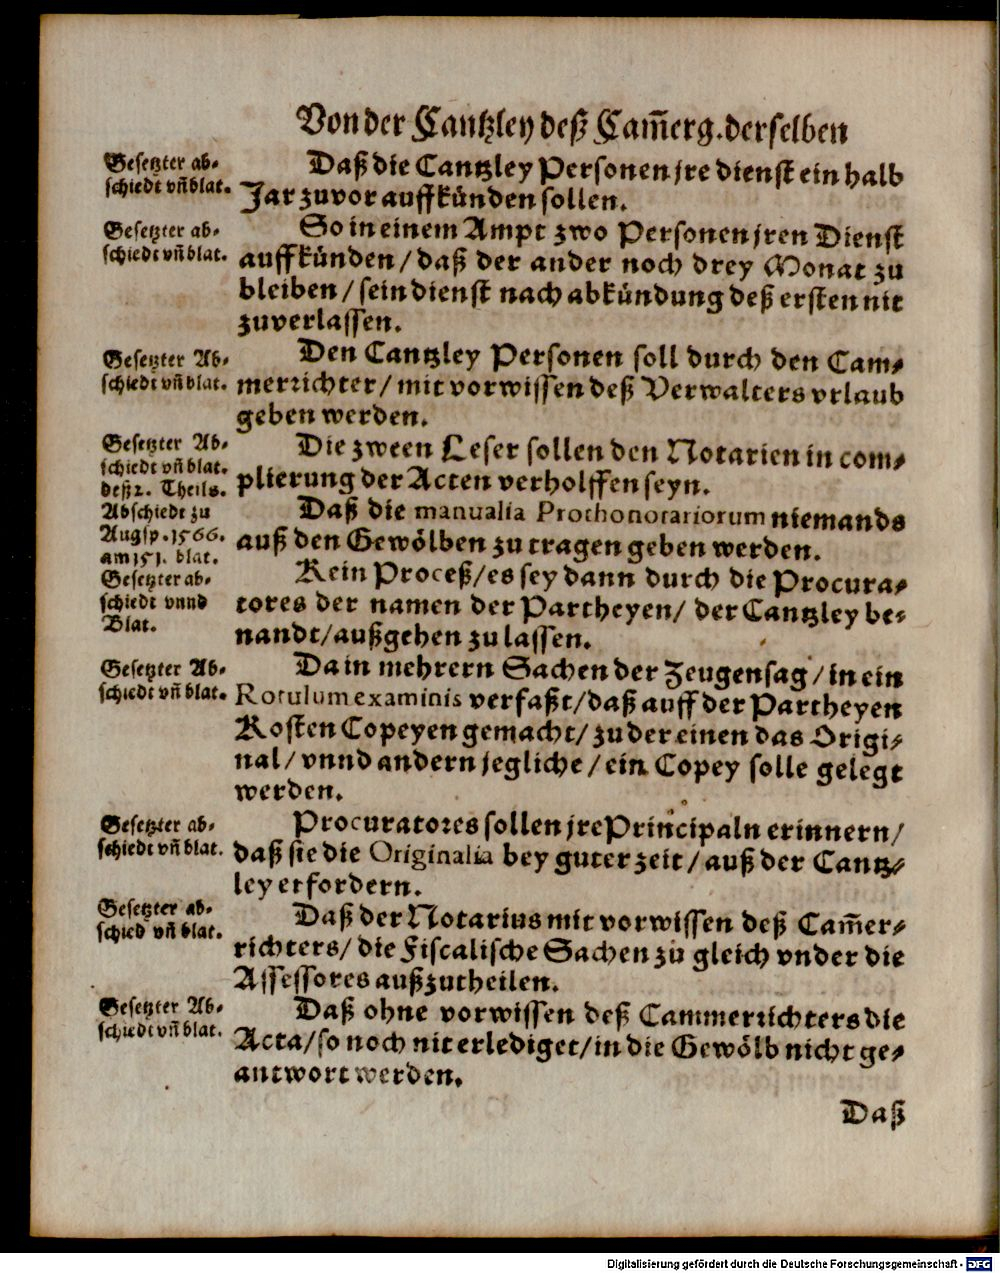 Von der Cantzley deß Cam̃erg. derselben
Gesetzter ab-
schiedt vñ blat.
Daß die Cantzley Personen jre dienst ein halb
Jar zuvor auffkünden sollen.
Gesetzter ab-
schiedt vñ blat.
So in einem Ampt zwo Personen jren Dienst
auffkünden / daß der ander noch drey Monat zu
bleiben / sein dienst nach abkündung deß ersten nit
zuverlassen.
Gesetzter Ab-
schiedt vñ blat.
Den Cantzley Personen soll durch den Cam-
merrichter / mit vorwissen deß Verwalters vrlaub
geben werden.
Gesetzter Ab-
schiedt vñ blat.
deß 2. Theils.
Die zween Leser sollen den Notarien in com-
plierung der Acten verholffen seyn.
Abschiedt zu
Augsp. 1566.
am 151. blat.
Daß die manualia Prothonotariorum niemands
auß den Gewölben zu tragen geben werden.
Gesetzter ab-
schiedt vnnd
Blat.
Kein Proceß / es sey dann durch die Procura-
tores der namen der Partheyen / der Cantzley be-
nandt / außgehen zu lassen.
Gesetzter Ab-
schiedt vñ blat.
Da in mehrern Sachen der Zeugensag / in ein
Rotulum examinis verfaßt / daß auff der Partheyen
Kosten Copeyen gemacht / zu der einen das Origi-
nal / vnnd andern jegliche / ein Copey solle gelegt
werden.
Gesetzter ab-
schiedt vñ blat.
Procuratores sollen jre Principaln erinnern /
daß sie die Originalia bey guter zeit / auß der Cantz-
ley erfordern.
Gesetzter ab-
schied vñ blat.
Daß der Notarius mit vorwissen deß Cam̃er-
richters / die Fiscalische Sachen zu gleich vnder die
Assessores außzutheilen.
Gesetzter Ab-
schiedt vñ blat.
Daß ohne vorwissen deß Cammerrichters die
Acta / so noch nit erlediget / in die Gewölb nicht ge-
antwort werden.
Daß
Digitalisierung gefördert durch die Deutsche Forschungsgemeinschaft - DFG